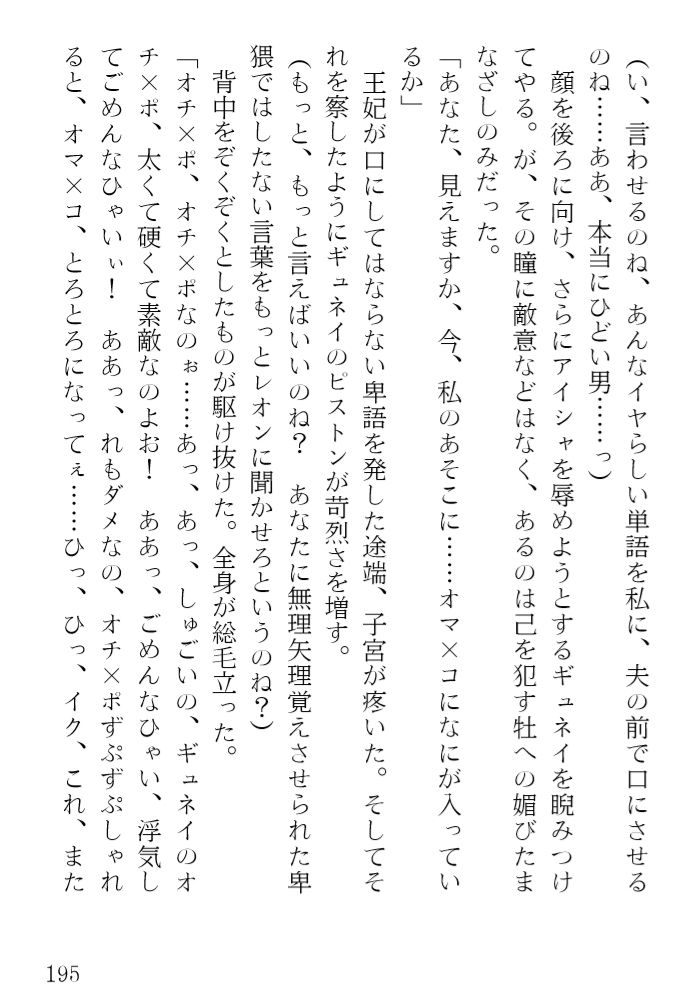 (い、言わせるのね、あんなイヤらしい単語を私に、夫の前で口にさせる
のね……ああ、本当にひどい男……っ)
　顔を後ろに向け、さらにアイシャを辱めようとするギュネイを睨みつけ
てやる。が、その瞳に敵意などはなく、あるのは己を犯す牡への媚びたま
なざしのみだった。
「あなた、見えますか、今、私のあそこに……オマ×コになにが入ってい
るか」
　王妃が口にしてはならない卑語を発した途端、子宮が疼いた。そしてそ
れを察したようにギュネイのピストンが苛烈さを増す。
(もっと、もっと言えばいいのね？　あなたに無理矢理覚えさせられた卑
猥ではしたない言葉をもっとレオンに聞かせろというのね？)
　背中をぞくぞくとしたものが駆け抜けた。全身が総毛立った。
「オチ×ポ、オチ×ポなのぉ……あっ、あっ、しゅごいの、ギュネイのオ
チ×ポ、太くて硬くて素敵なのよお！　ああっ、ごめんなひゃい、浮気し
てごめんなひゃいぃ！　ああっ、れもダメなの、オチ×ポずぷずぷしゃれ
ると、オマ×コ、とろとろになってぇ……ひっ、ひっ、イク、これ、また
195